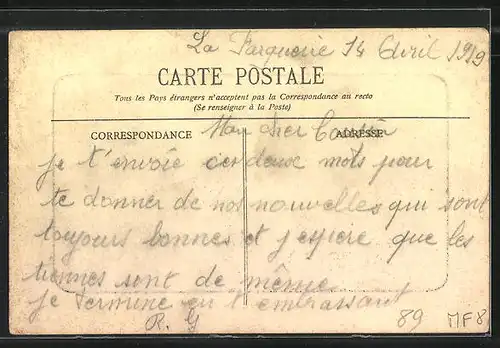 La Farguerie 14 Avril 1919
CARTE POSTALE
Tous les Pays étrangers n'acceptent pas la Correspondance au recto
(Se renseigner à la Poste)
CORRESPONDANCE
ADRESSE
Mon cher Cousin
je t'envoie ces deux mots pour
te donner de nos nouvelles qui sont
toujours bonnes et j'espère que les
tiennes sont de même
je termine en t'embrassant
R. G
89 MF8